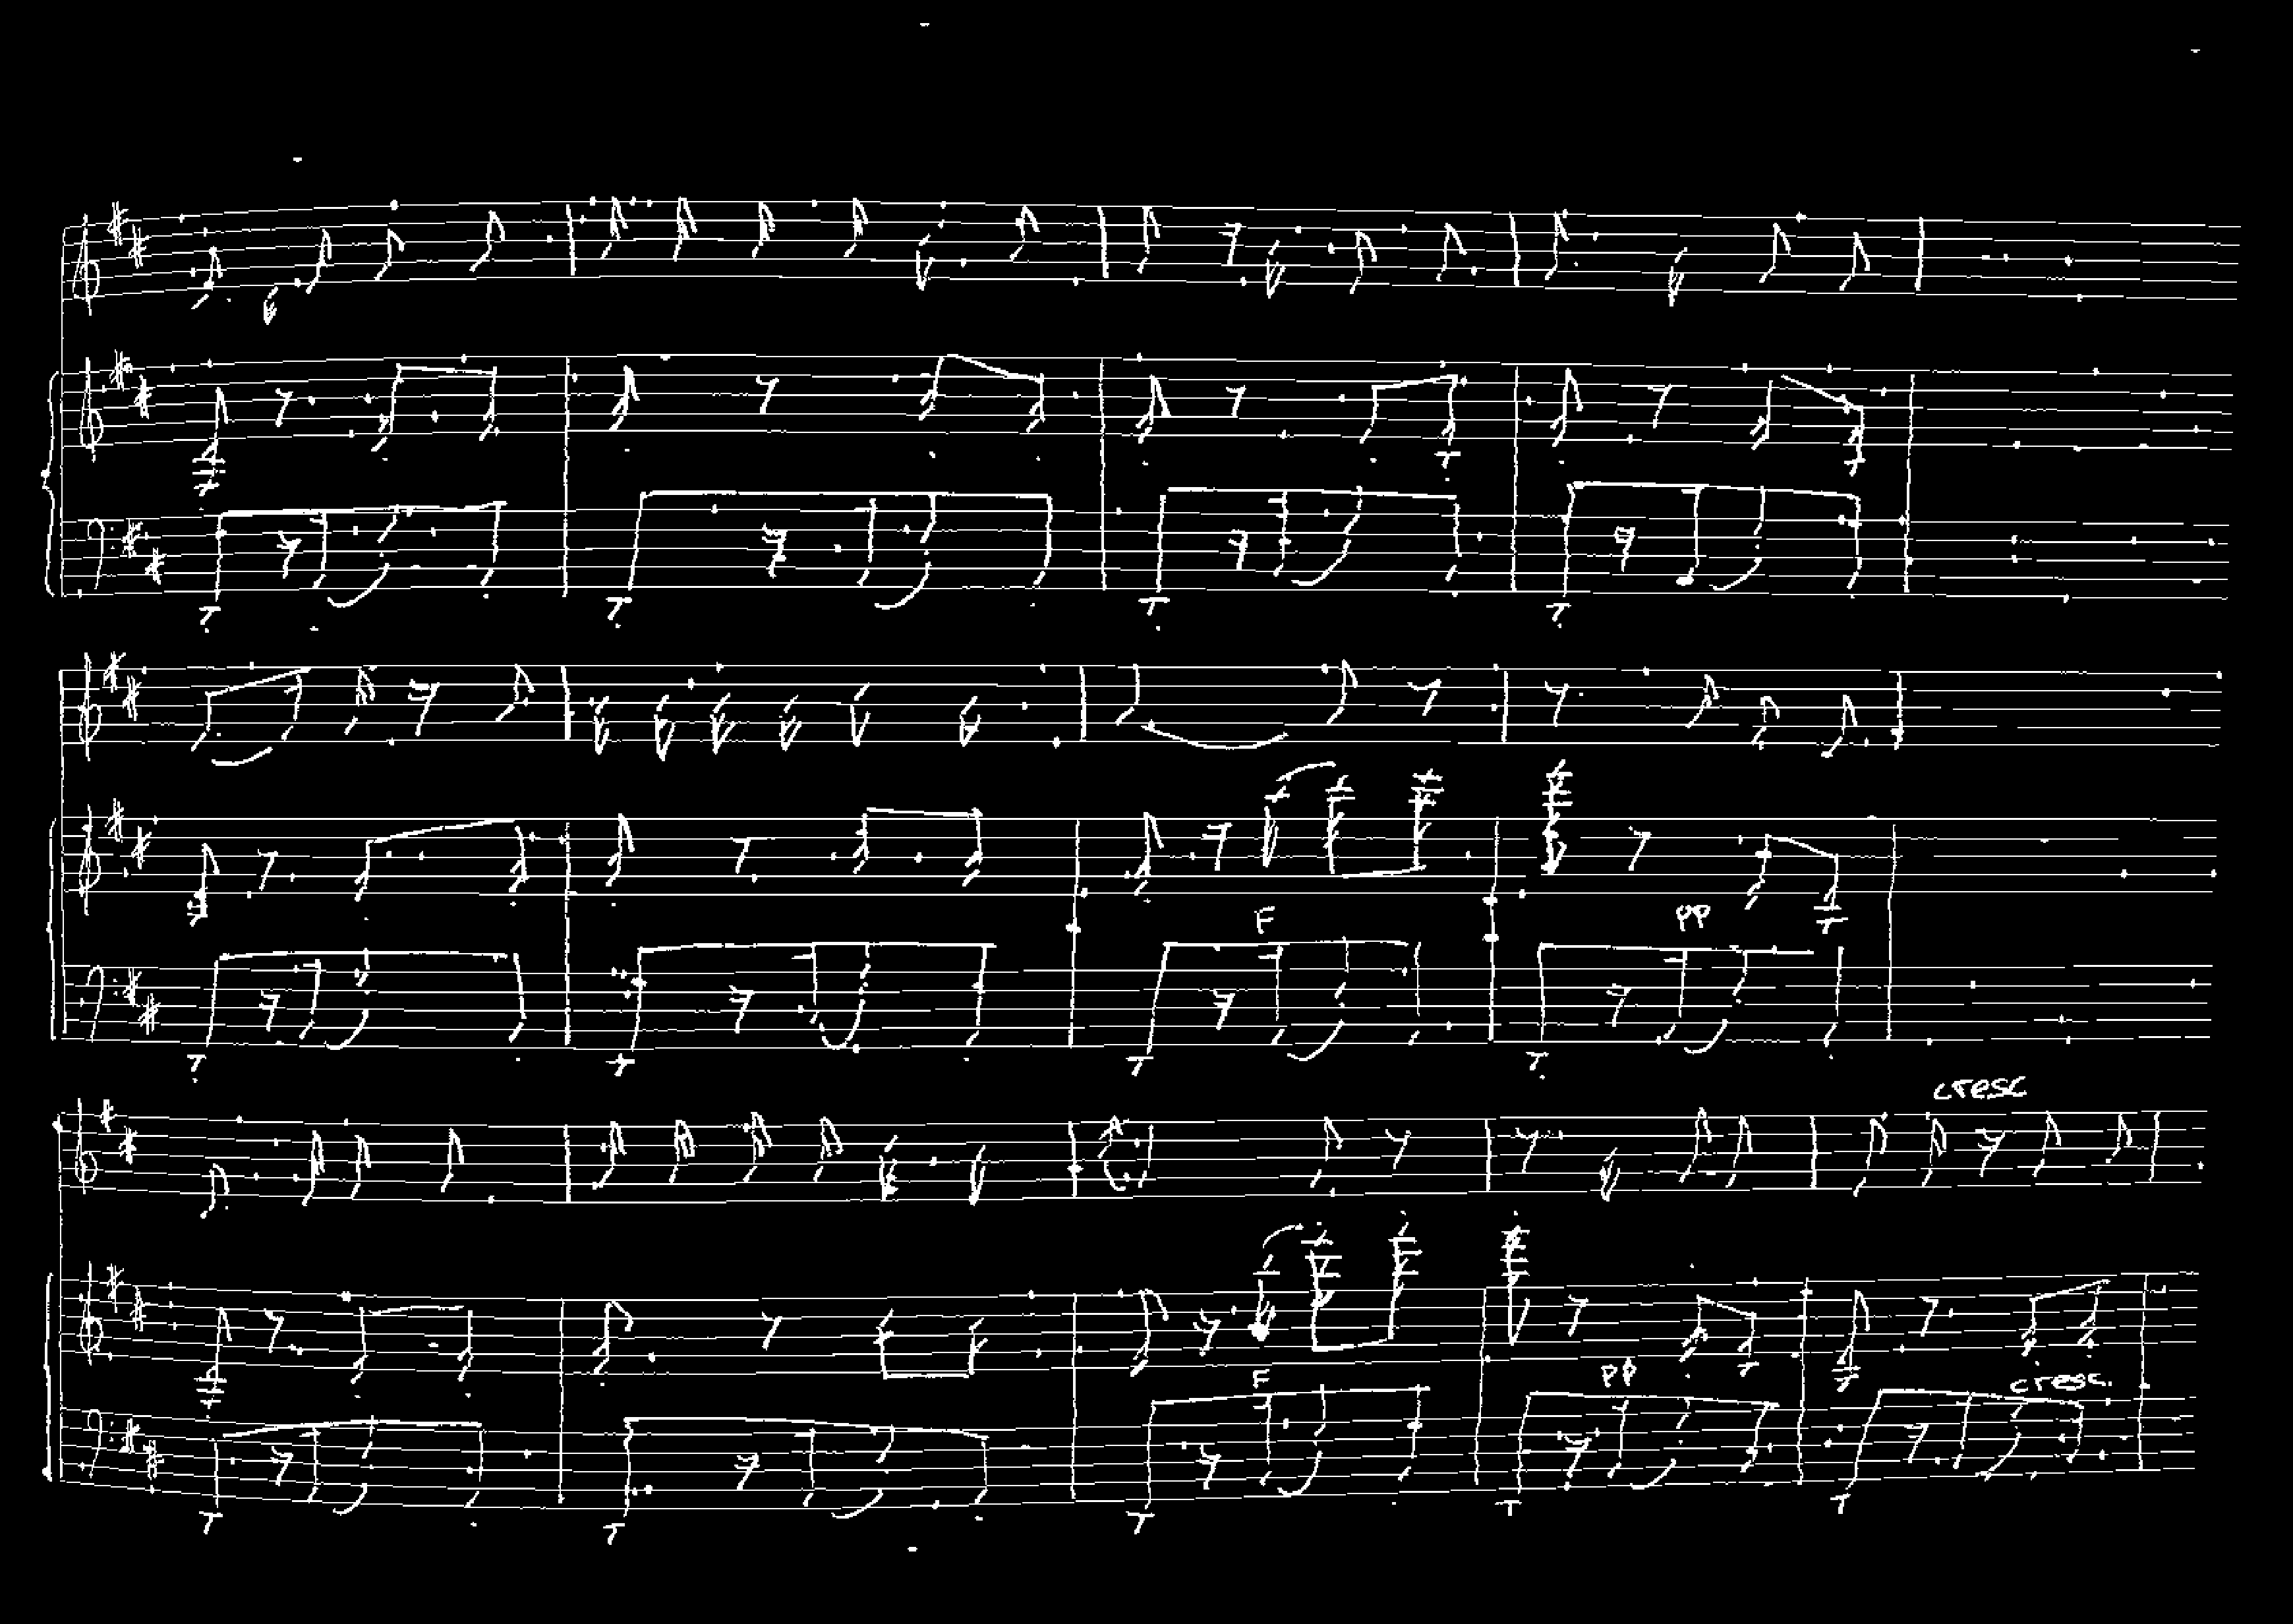 F
pp
cresc
F
pp
cresc.